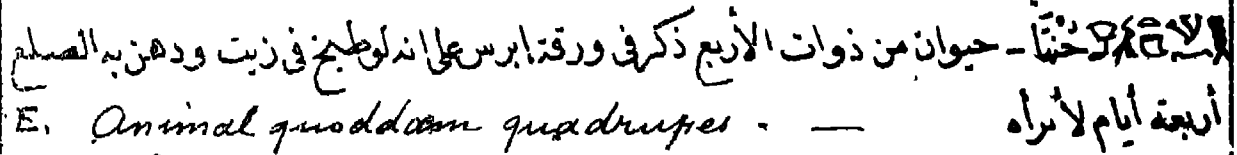 حُنتَا - حيوان من ذوات الأربع ذكر فى ورقة ابرس على انه لو طبخ فى زيت ودهن به الصلع
أربعة أيام لأبرأه — E. Animal quoddam quadrupes .